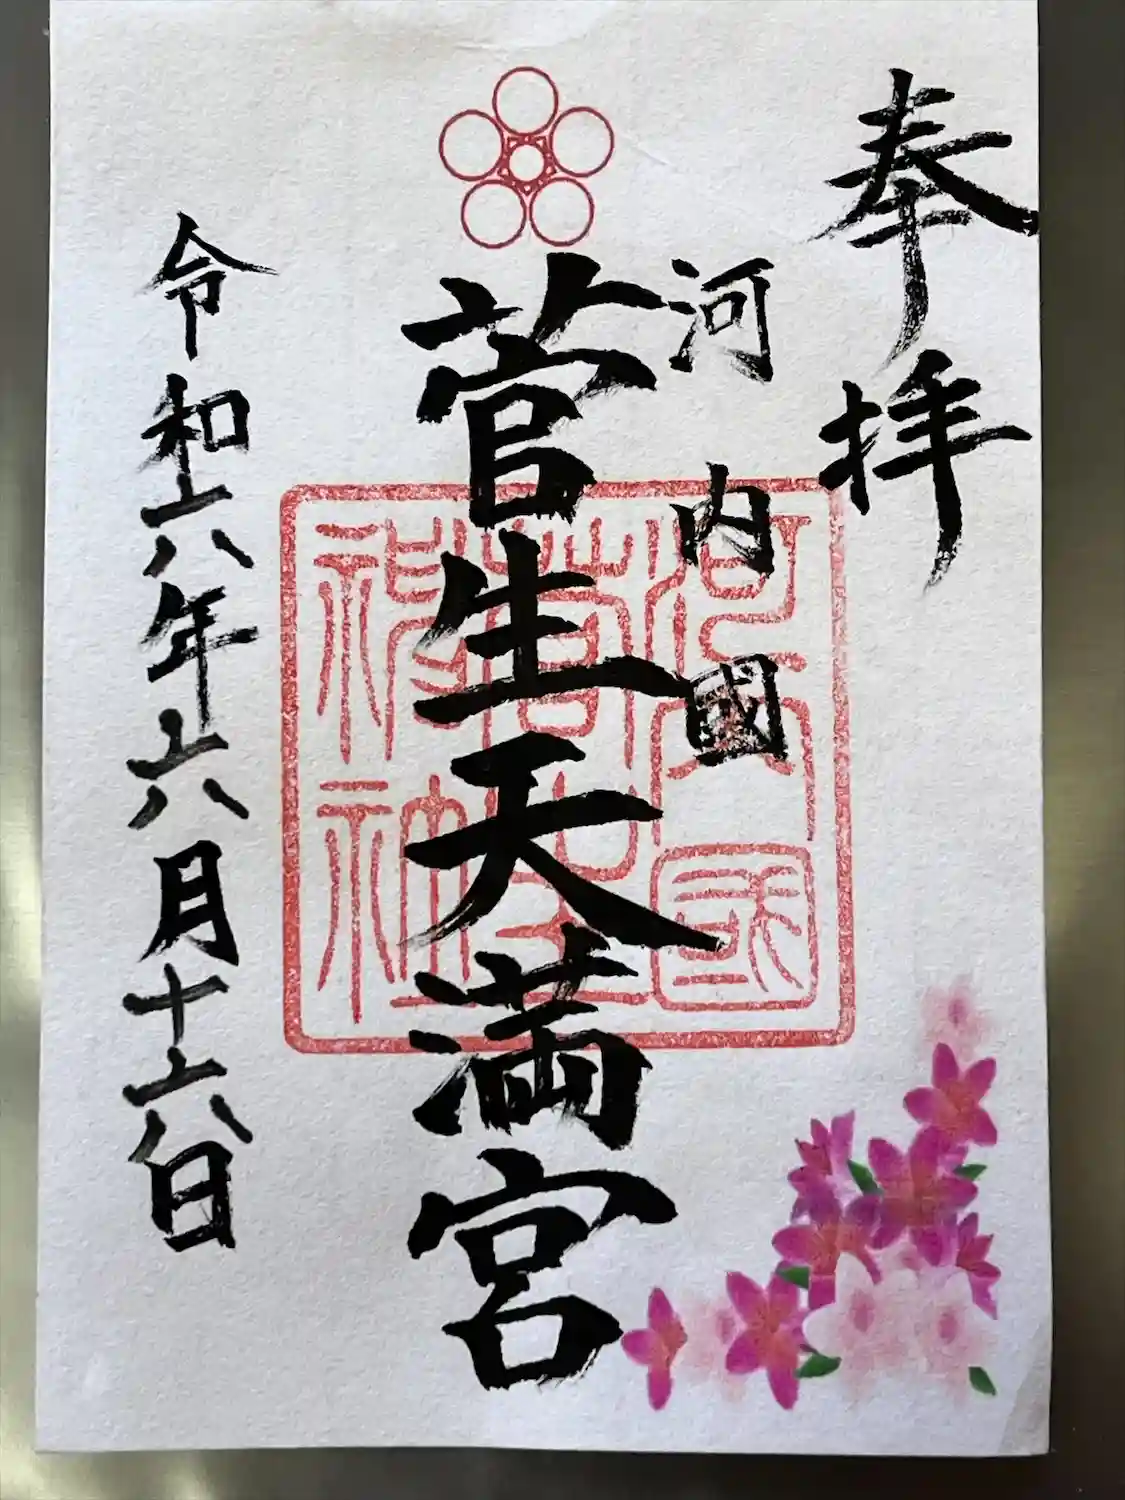 奉拝
河内國
菅生天満宮
令和六年六月十六日
河内国
菅生
神社